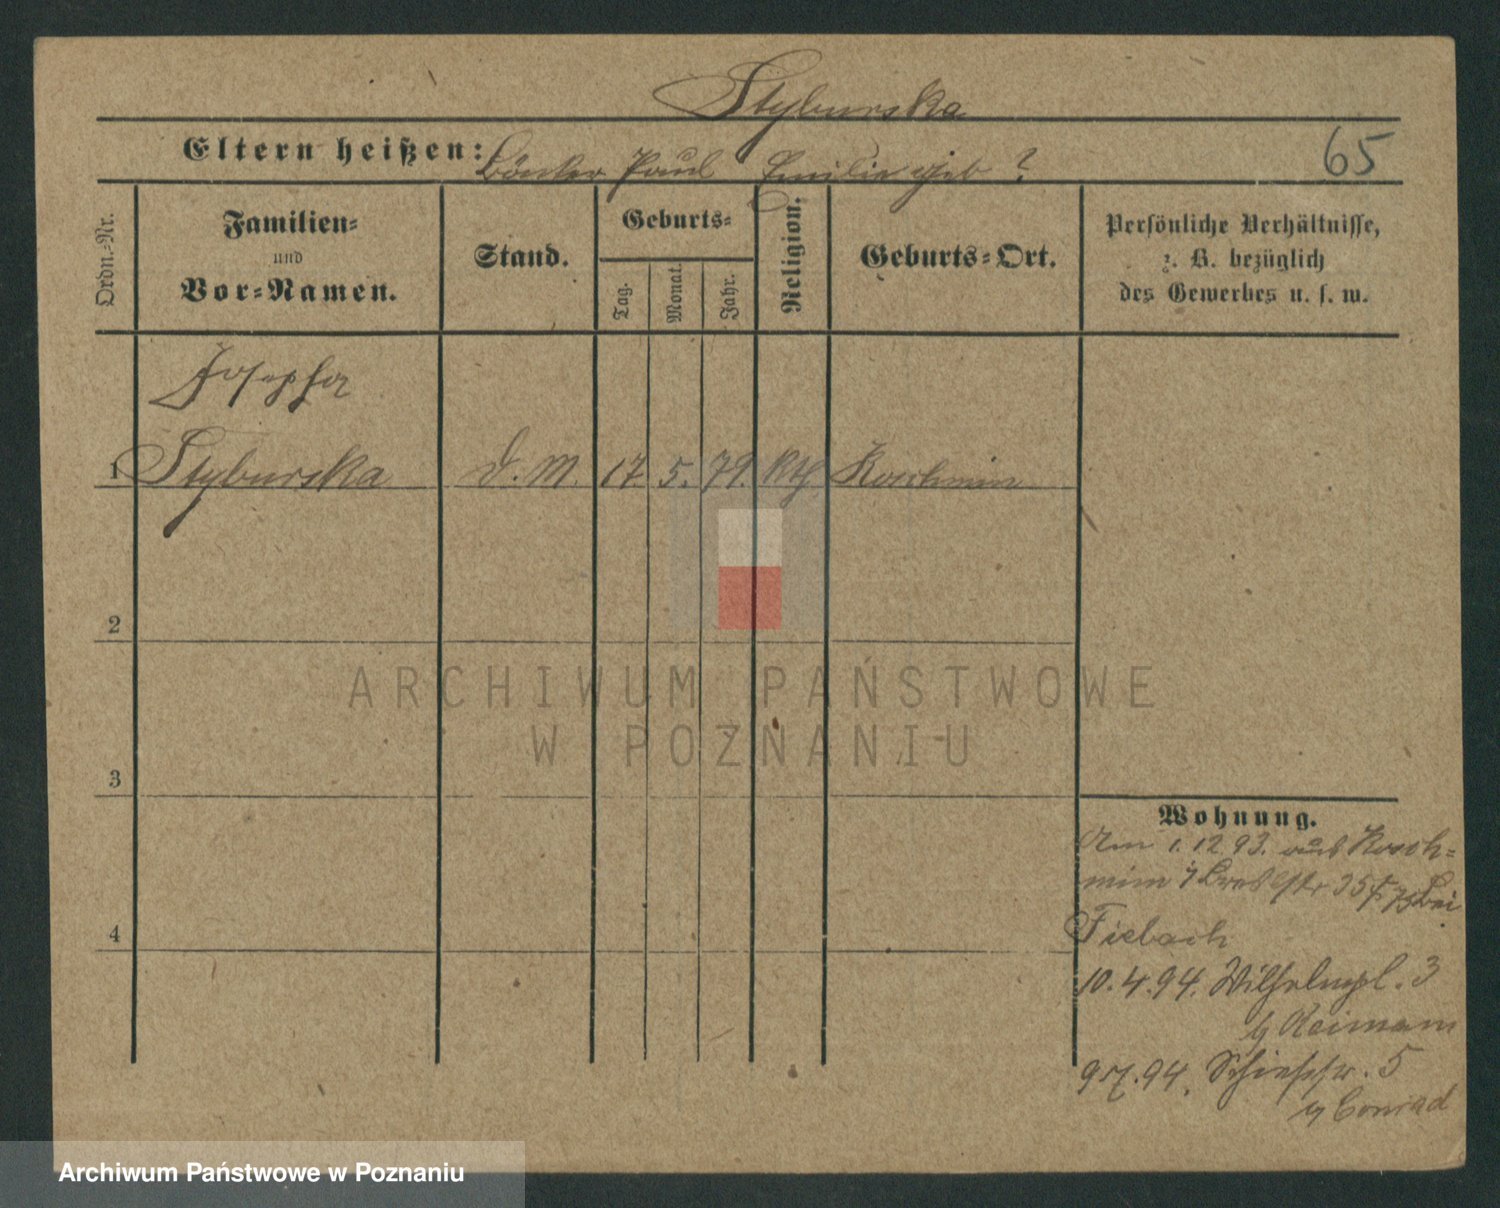 Styburska
Eltern heißen: Böttcher Paul Emilie geb ?
65
Ordn.=Nr.
Familien=
und
Vor=Namen.
Stand.
Geburts=
Tag.
Monat.
Jahr.
Religion.
Geburts=Ort.
Persönliche Verhältnisse,
z. B. bezüglich
des Gewerbes u. s. w.
Josepha
1 Styburska D. M. 17. 5. 79. Kth. Koschmin
2
ARCHIWUM PAŃSTWOWE
W POZNANIU
3
Wohnung.
Am 1.12.93. aus Kosch=
min Bresl str 35 bei
Fiebach
4
10.4.94. Wilhelmpl. 3
Reimann
9.7.94. Schießstr. 5
Conrad
Archiwum Państwowe w Poznaniu